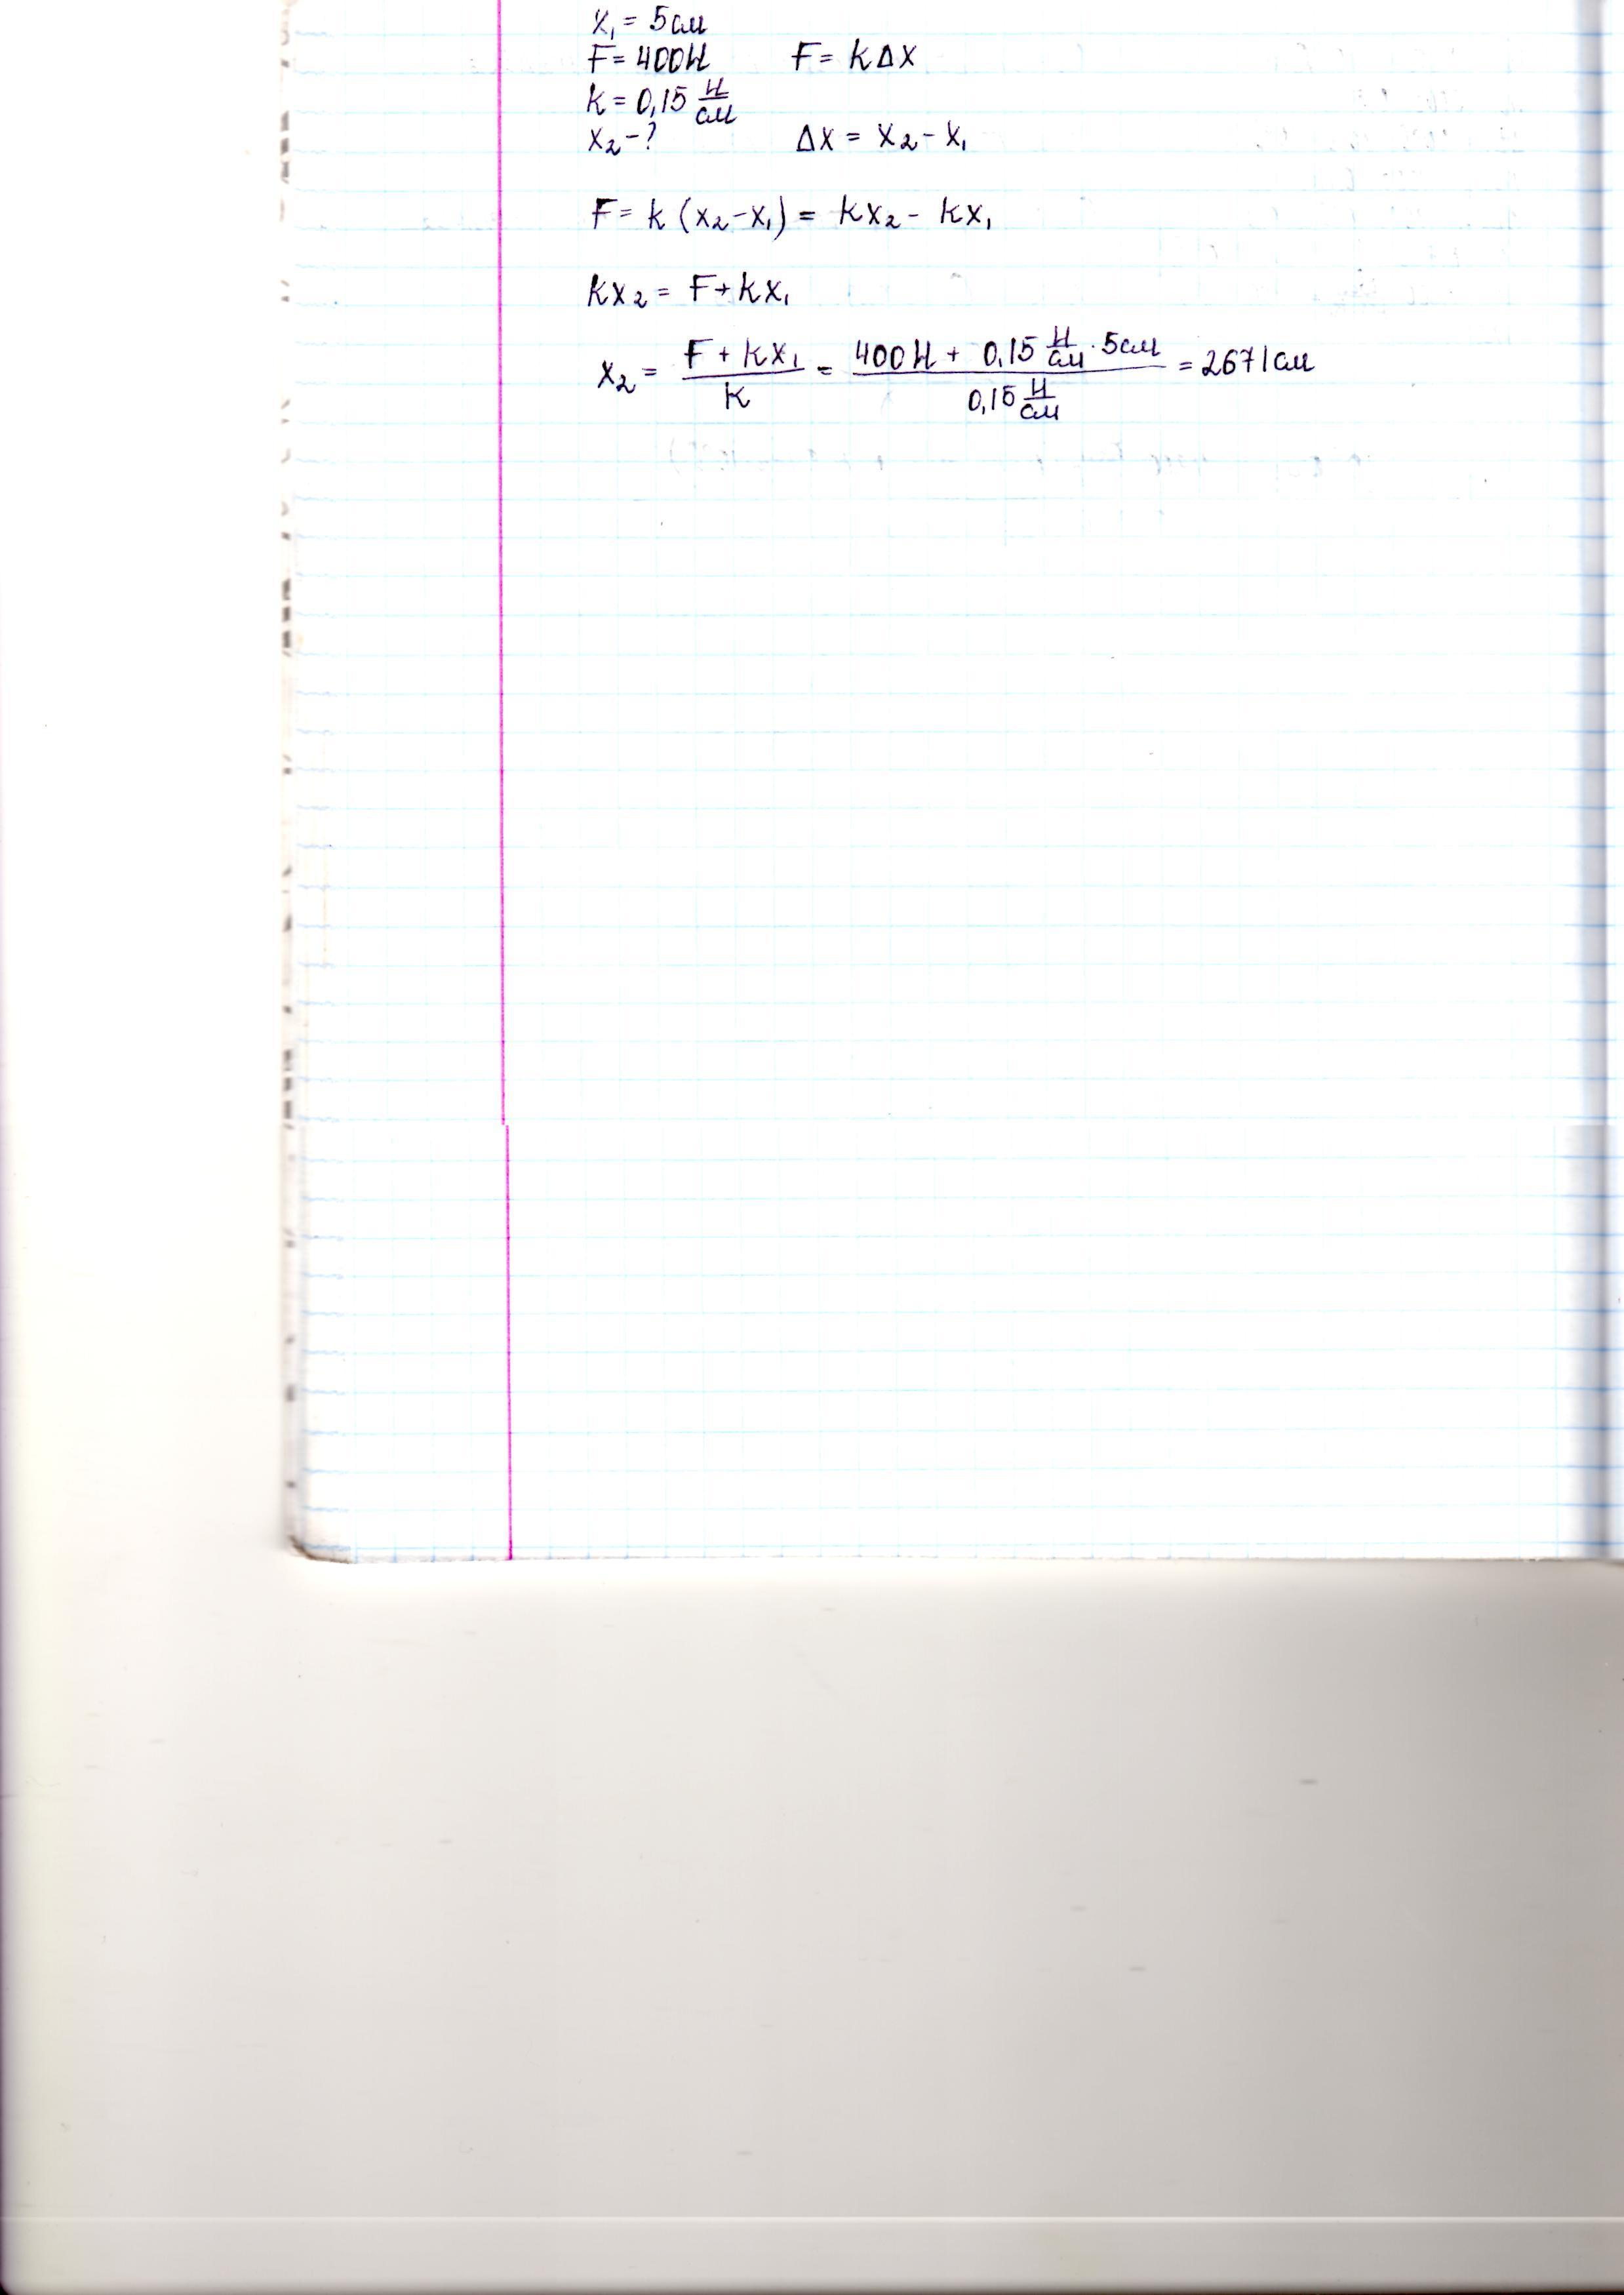 x₁ = 5см
F = 400Н F = kΔx
k = 0,15 Н/см
x₂ - ? Δx = x₂ - x₁
F = k (x₂ - x₁) = kx₂ - kx₁
kx₂ = F + kx₁
x₂ = (F + kx₁)/k = (400Н + 0,15 Н/см · 5см)/(0,15 Н/см) = 2671см